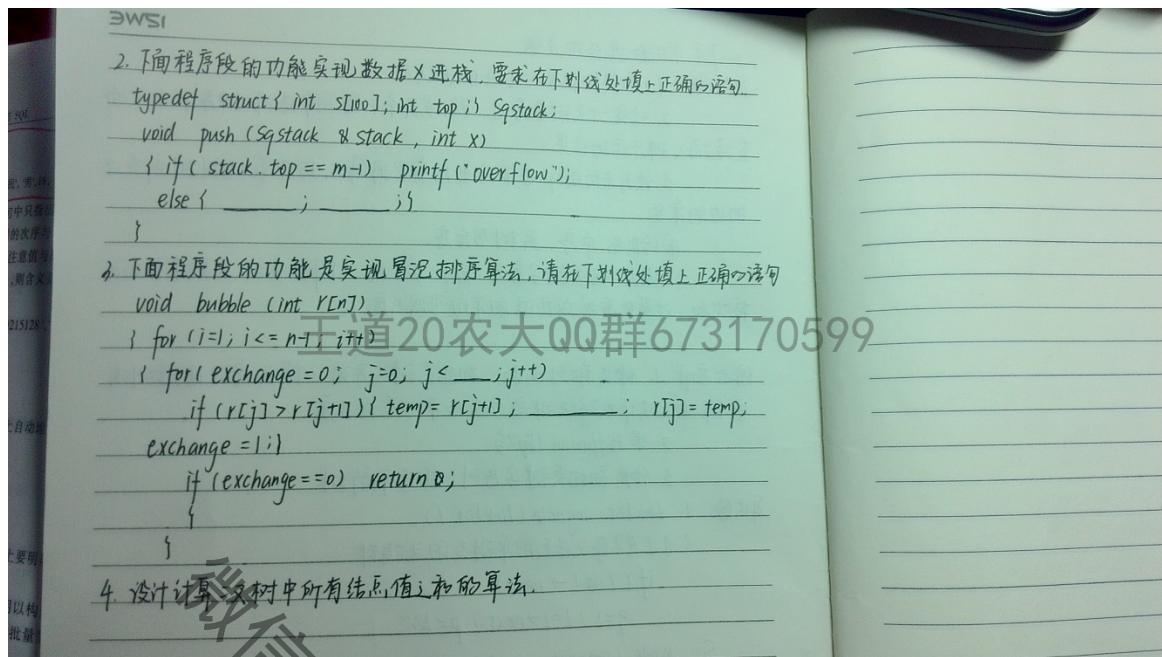 2. 下面程序段的功能实现数据X进栈，要求在下划线处填上正确的语句.
typedef struct { int s[100]; int top; } sqstack;
void push (sqstack & stack, int x)
{ if( stack.top == m-1) printf ("overflow");
else { ______; ______; }
}
3. 下面程序段的功能是实现冒泡排序算法, 请在下划线处填上正确的语句
void bubble (int r[n])
{ for (i=1; i <= n-1; i++)
王道20农大QQ群673170599
{ for( exchange = 0; j=0; j < ___; j++)
if (r[j] > r[j+1]) { temp = r[j+1]; ________; r[j] = temp;
exchange = 1; }
if (exchange == 0) return 0;
}
}
4. 设计计算二叉树中所有结点值之和的算法.
微信